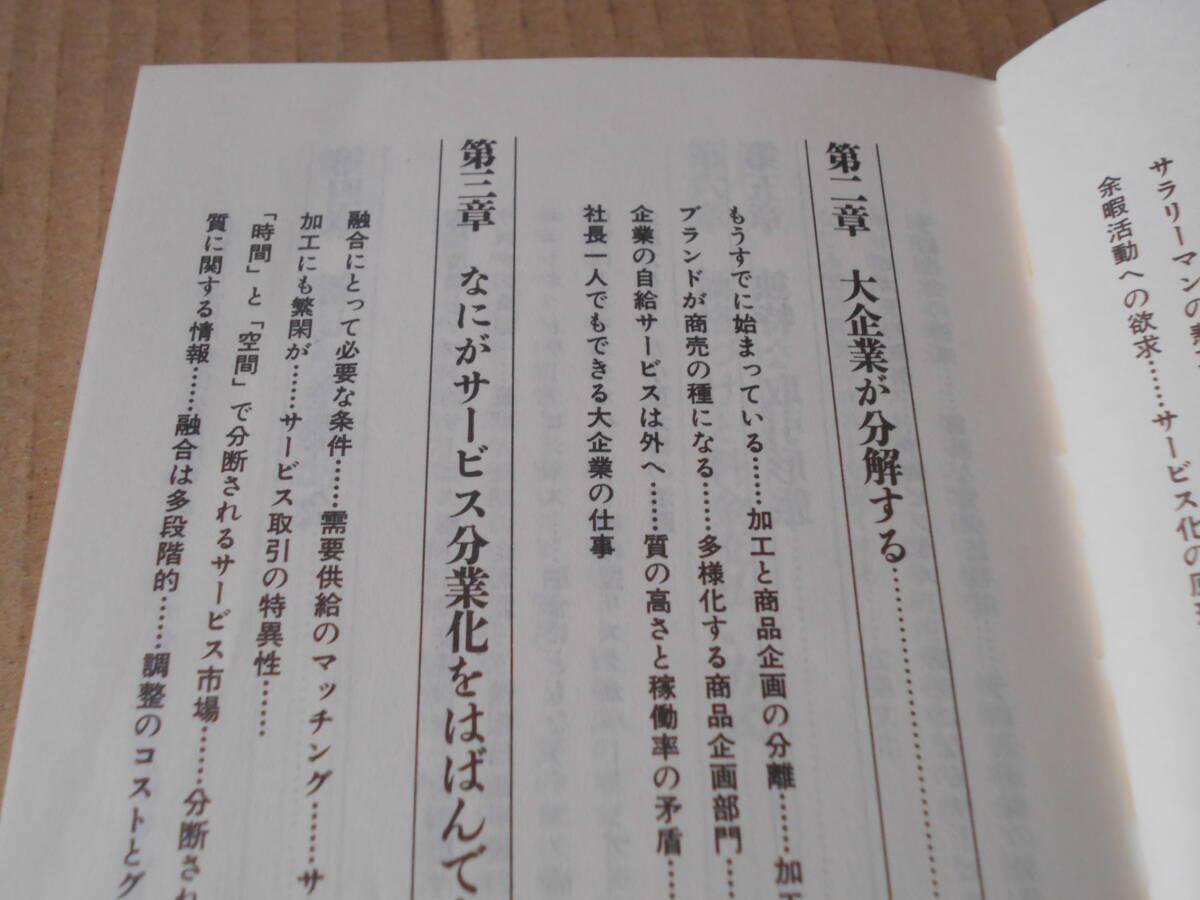 サラリーマンの
余暇活動への欲求……サービス化の原
第二章　大企業が分解する……………
もうすでに始まっている……加工と商品企画の分離……加工
ブランドが商売の種になる……多様化する商品企画部門……
企業の自給サービスは外へ……質の高さと稼働率の矛盾……
社長一人でもできる大企業の仕事
第三章　なにがサービス分業化をはばんで
融合にとって必要な条件……需要供給のマッチング……サ
加工にも繁閑が……サービス取引の特異性……
「時間」と「空間」で分断されるサービス市場……分断され
質に関する情報……融合は多段階的……調整のコストとグ